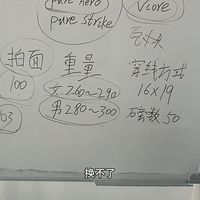 pure aero
pure strike
Vcore
拍面
重量
穿线方式
100
女 260~290
16×19
男 280~300
磅数 50
换不了